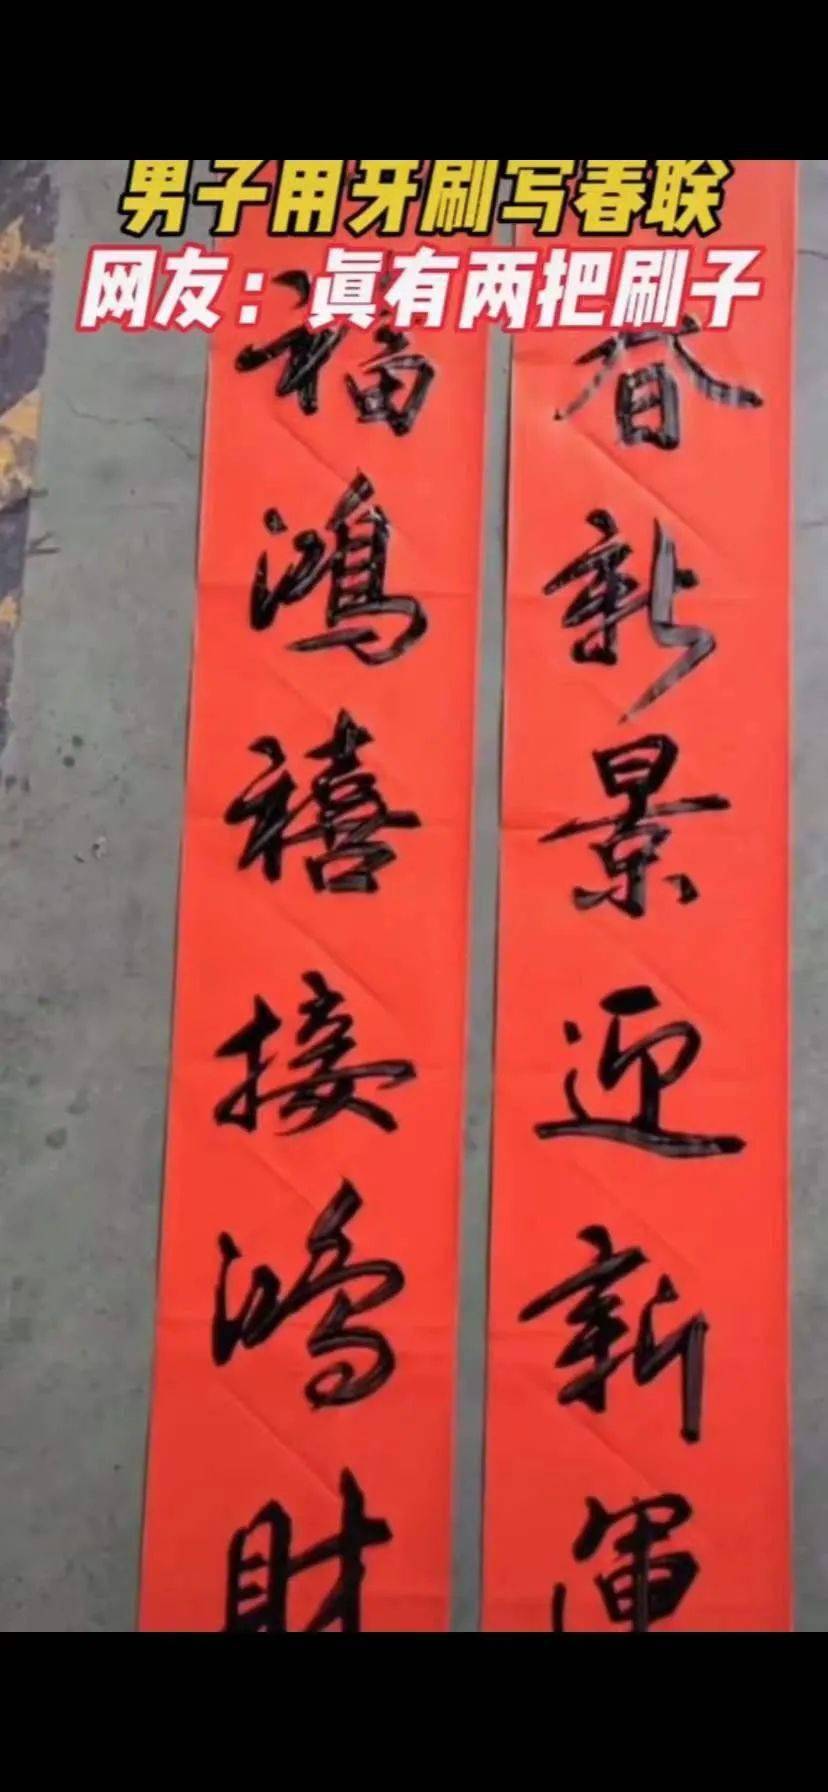 男子用牙刷写春联
网友：真有两把刷子
春新景迎新運
福鴻禧接鴻财